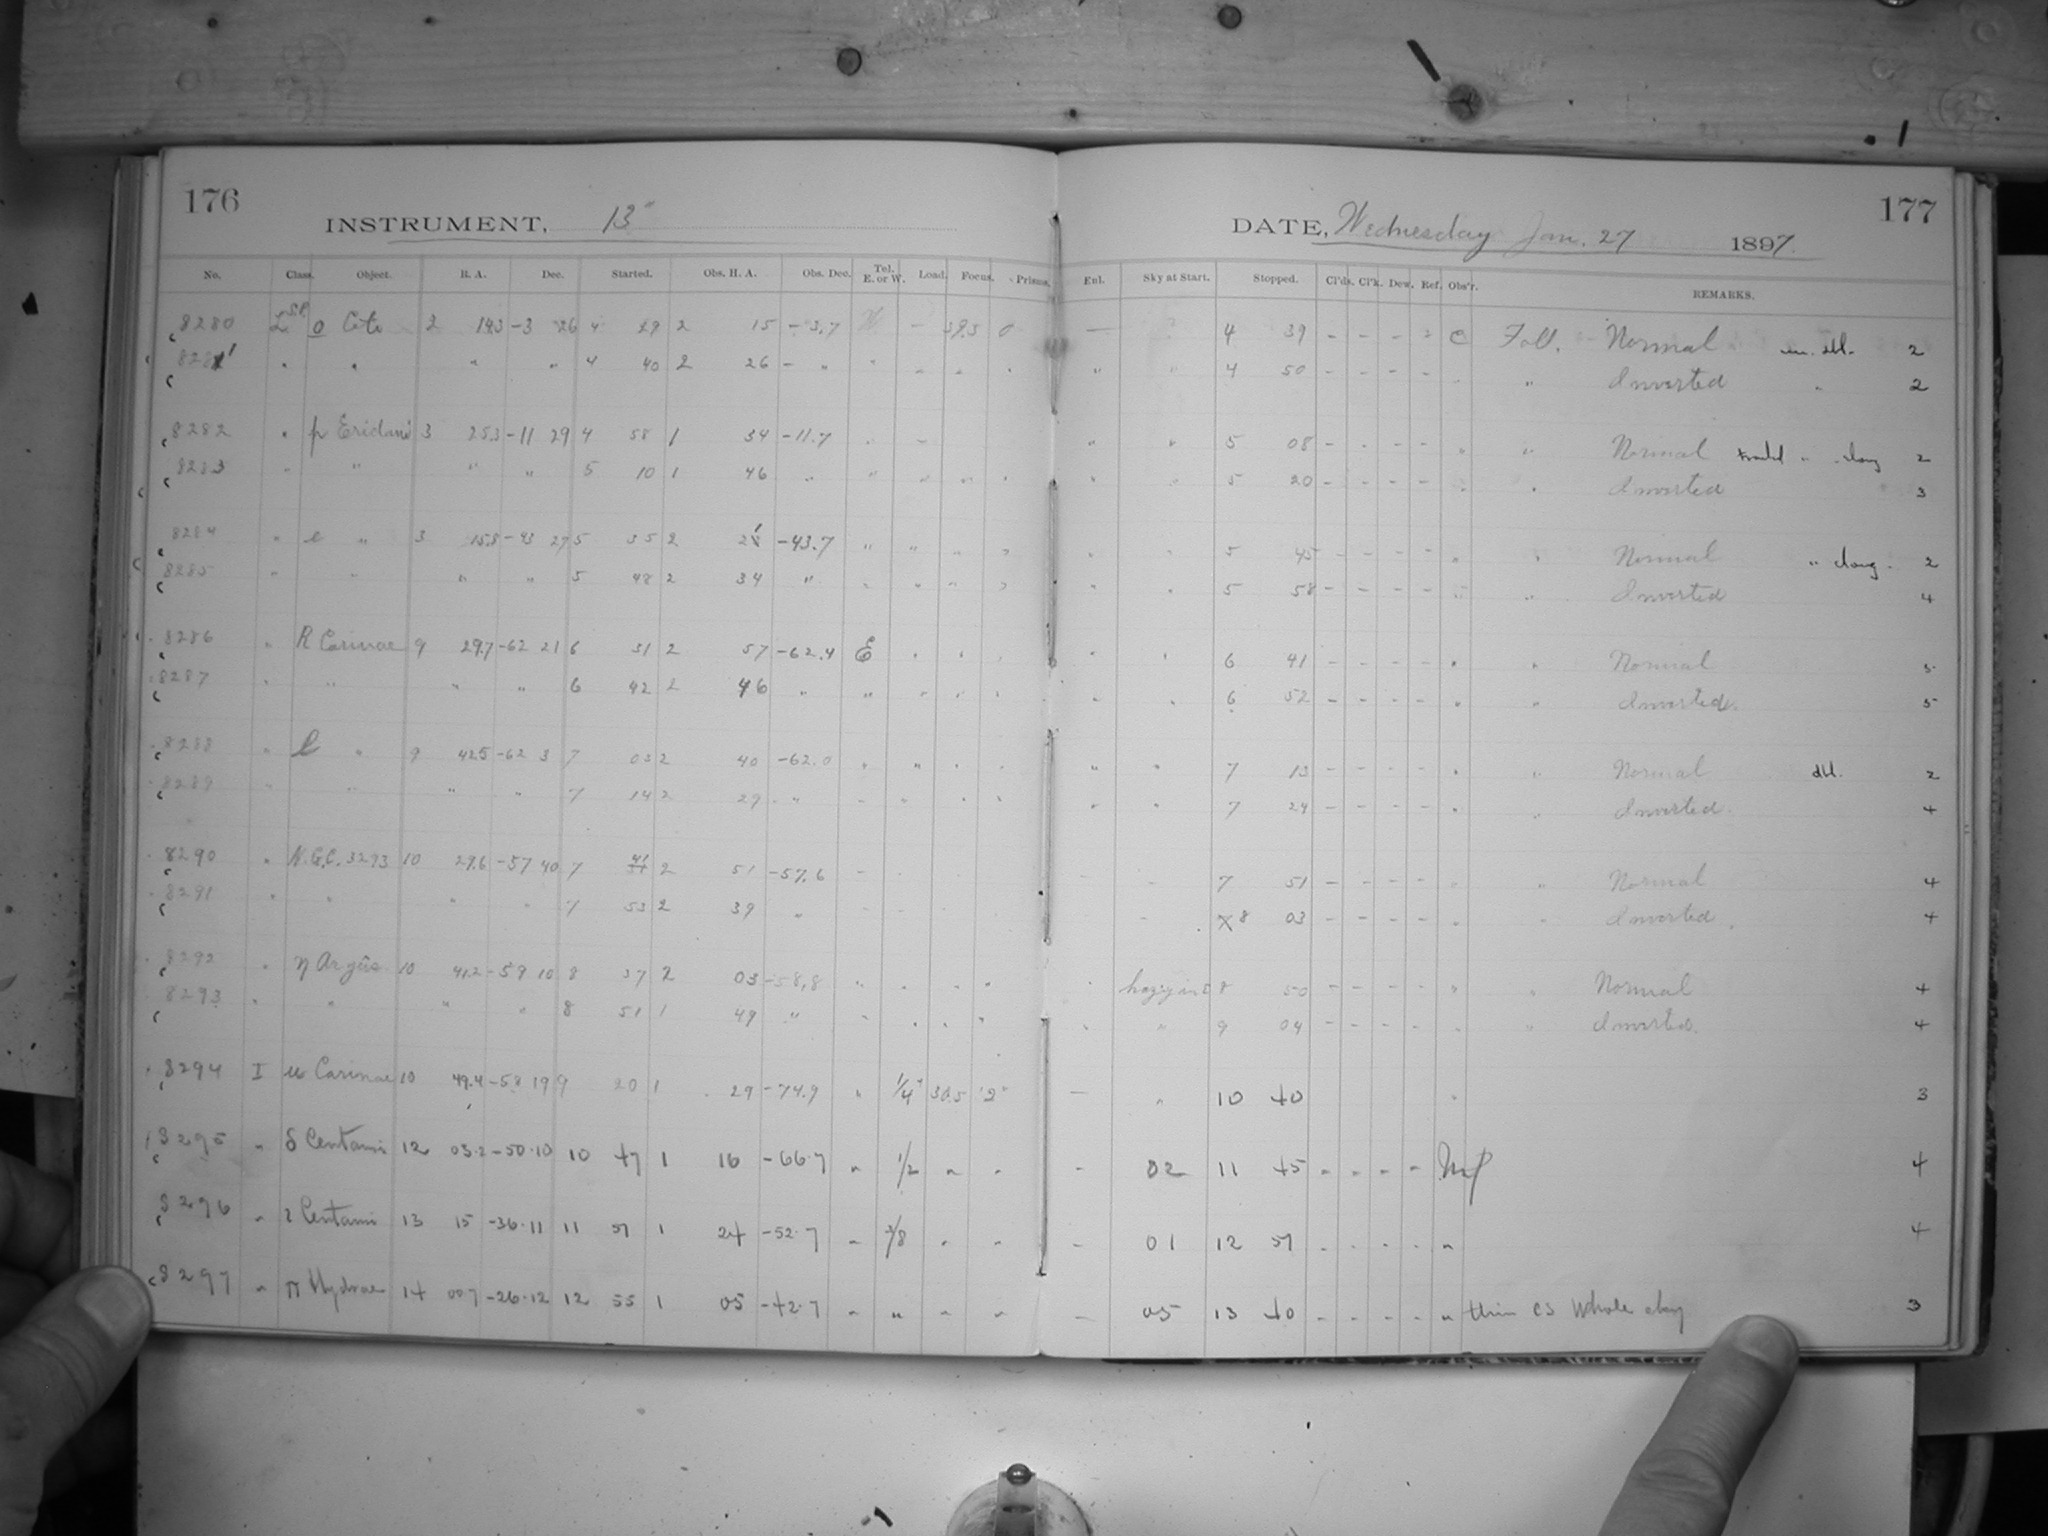 176
INSTRUMENT, 13"
DATE, Wednesday Jan. 27 1897.
177
No. Class. Object. R. A. Dec. Started. Obs. H. A. Obs. Dec. Tel. E. or W. Load. Focus. Prisms. Enl. Sky at Start. Stopped. Cl'ds. Cl'k. Dew. Ref. Obs'r. REMARKS.
8280 o Ceti 2 14.3 -3 26 4 29 2 15 -3.7 — 0 — 4 39 - - - C Foll. Normal 2
8281 " " " " 4 40 2 26 - " " 4 50 - - - - " Inverted " 2
8282 " p Eridani 3 25.3 -11 29 4 58 1 34 -11.7 5 08 - - - - " " Normal 2
8283 " " " " 5 10 1 46 " " 5 20 - - - - " " Inverted 3
8284 " e " 3 15.8 -43 27 5 35 2 21 -43.7 " " 5 45 - - - - " " Normal " 2
8285 " " " " 5 48 2 34 " 5 58 - - - - " " Inverted 4
8286 " R Carinae 9 29.7 -62 21 6 31 2 57 -62.4 E 6 41 - - - - " " Normal 5
8287 " " " " 6 42 2 46 " " 6 52 - - - - " " Inverted. 5
8288 " l " 9 42.5 -62 3 7 03 2 40 -62.0 " " 7 13 - - - - " " Normal 2
8289 " " " " 7 14 2 29 " 7 24 - - - - " Inverted. 4
8290 " N.G.C. 3293 10 29.6 -57 40 7 41 2 51 -57.6 7 51 - - - - " " Normal 4
8291 " " " " 7 53 2 39 " 8 03 - - - - " " Inverted. 4
8292 " η Argûs 10 41.2 -59 10 8 37 2 03 -58.8 " 8 50 - - - - " " Normal 4
8293 " " " " 8 51 1 49 " " 9 04 - - - - " " Inverted. 4
8294 I u Carinae 10 49.4 -58 19 9 20 1 29 -74.9 " 1/4 30.5 2 — " 10 40 " 3
8295 " δ Centauri 12 03.2 -50.10 10 47 1 16 -66.7 " 1/2 " " - 02 11 45 - - - - 4
8296 " ι Centauri 13 15 -36.11 11 51 1 24 -52.7 " " " - 01 12 51 - - - - " 4
8297 " π Hydrae 14 00.7 -26.12 12 55 1 05 -42.7 " " " " - 05 13 40 - - - - " thin CS whole sky 3